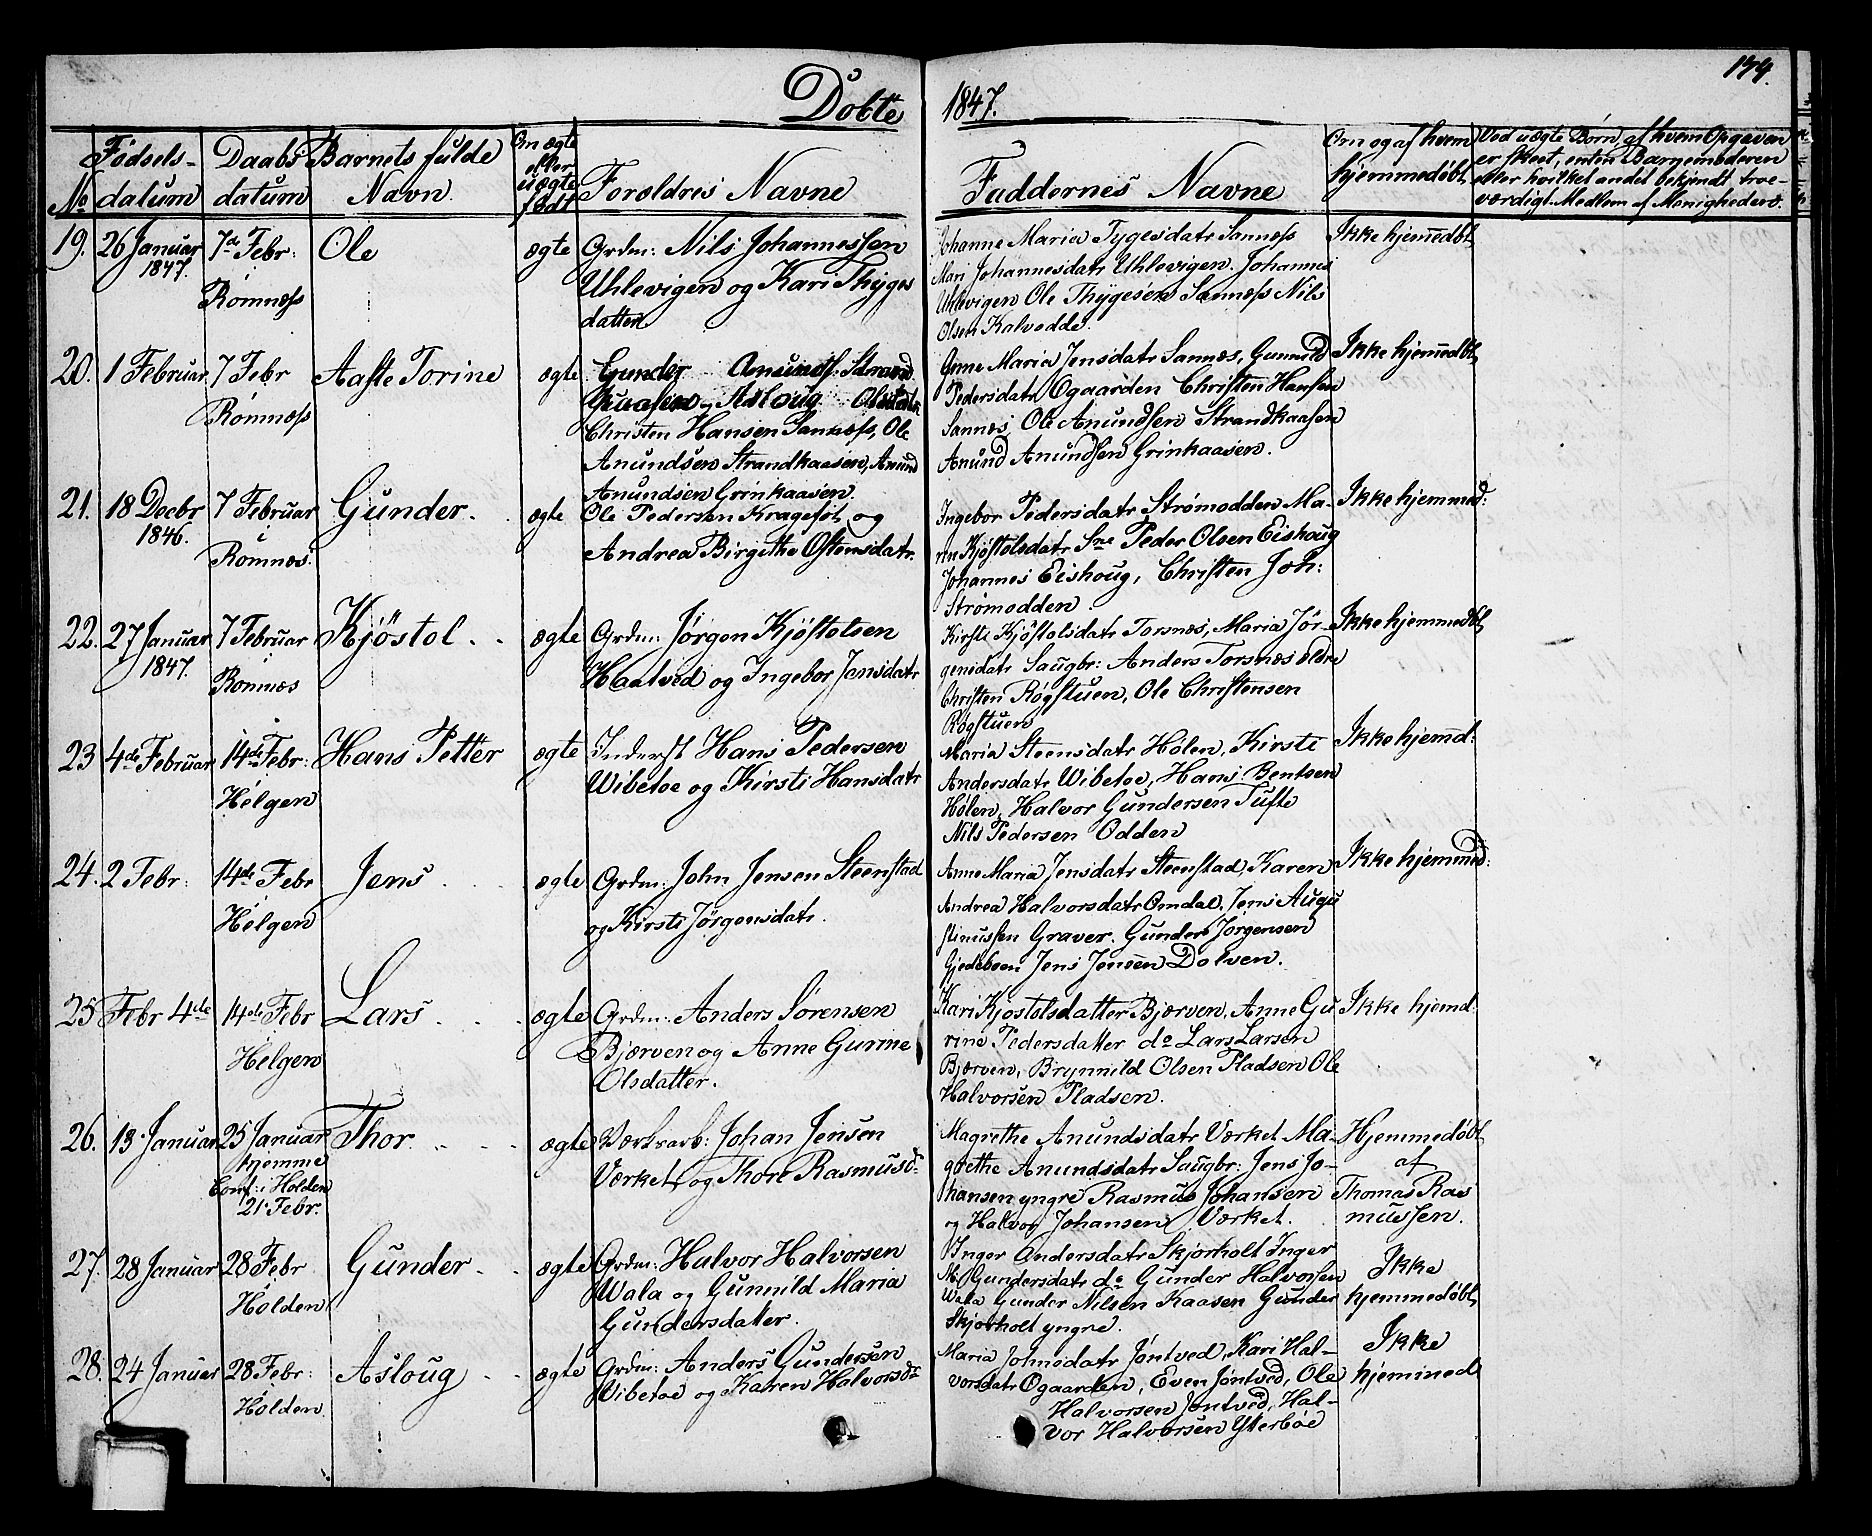 Døbte
1847.
174.
No
Fødsels-
datum
Daabs
datum
Barnets fulde
Navn
Om ægte
eller
uægte
født
Forældres Navne
Faddernes Navne
Om og af hvem
hjemmedøbt
Ved uægte Børn, af hvem Opgaven
er skeet, enten Barnemoderen
eller hvilket andet bekjendt troe-
værdigt Medlem af Menigheden.
19. 26 Januar
1847.
7de Febr:
Romnæss
Ole
ægte
Grdm: Nils Johannessen
Uhlevigen og Kari Thyges
datter
Johanne Maria Tygesdatr Sannæss
Mari Johannesdatr Uhlevigen. Johannes
Uhlevigen Ole Thygesen Sannæss Nils
Olsen Kalvedde.
Ikke hjemedøbt
20. 1 Februar
7 Febr
Romnæss
Aaste Torine
ægte
Gunder Anunds. Strand
og Asloug Olsdatr
Christen Hansen Sannæss, Ole
Anundsen Strandkaasen, Anund
Anundsen Grinkaasen.
Anne Maria Jensdatr Sannæs, Gunnild
Pedersdatr Ogaarden Christen Hansen
Sannæs, Ole Anundsen Strandkaasen
Anund Anundsen Grinkaasen.
Ikke hjemedøbt
21. 18 Decbr
1846.
7 Februar
Romnæs.
Gunder.
ægte
Ole Pedersen Kragefot, og
Andrea Birgithe Ostensdatr.
Ingebor Pedersdatr Strømodden Ma-
rn Kjøstolsdatr Sne Peder Olsen Eishoug
Johannes Eishoug, Christen Joh:
Strømodden.
Ikke hjemmed:
22. 27 Januar
1847.
7 Februar
Romnæs
Kjöstol
ægte
Grdm: Jørgen Kjøstolsen
Haatved og Ingebor Jensdatr
Kirsti Kjøstolsdatr Torsnæs, Maria Jør-
gensdatr Saugbr: Anders Torsnæs ældre
Christen Røgstuen, Ole Christensen
Røgstuen
Ikke hjemmedøbt
23 4de Februar
14de Febr:
Helgen
Hans Petter
ægte
Inderst Hans Pedersen
Wibetoe og Kirsti Hansdatr
Maria Steensdatr Hølen, Kirsti
Andersdatr Wibetoe, Hans Bentsen
Hølen, Halvor Gundersen Tufte
Nils Pedersen Odden
Ikke hjemd:
24. 2 Febr:
14de Febr
Helgen
Jens
ægte
Grdm: John Jensen Steenstad
og Kirsti Jørgensdatr.
Anne Maria Jensdatr Steenstad, Karen
Andrea Halvorsdatr Omdal, Jens Augu
stinussen Graver. Gunder Jørgensen
Gjedeboen Jens Jensen Dolven.
Ikke hjemmed:
25 Febr 4de
14de Febr
Helgen
Lars
ægte
Grdm: Anders Sørensen
Bjærven og Anne Gurine
Olsdatter.
Kari Kjøstolsdatter Bjærven, Anne Gu
rine Pedersdatter do Lars Larsen
Bjærven, Brynnild Olsen Pladsen Ole
Halvorsen Pladsen.
Ikke hjemd:
26. 13 Januar
25 Januar
hjemme
Conf: i Holden
21 Febr.
Thor
ægte
Værksarb: Johan Jensen
Værket, og Thore Rasmusd:
Magrethe Anundsdatr Værket Ma-
grethe Anundsdatr Saugbr: Jens Jo-
hansen yngre Rasmus Johansen
og Halvor Johansen Værket.
Hjemmedøbt
af
Thomas Ras
mussen.
27. 28 Januar
28 Febr
Holden
Gunder
ægte
Grdm: Halvor Halvorsen
Wala og Gunnild Maria
Gundersdatter.
Inger Andersdatr Skjorholt Inger
M. Gundersdatr do Gunder Halvorsen
Wala Gunder Nilsen Kaasen Gunder
Skjorholt yngre.
Ikke
hjemmedøbt,
28. 24 Januar
28 Febr:
Holden
Asloug
ægte
Grdm: Anders Gundersen
Wibetoe og Karen Halvorsdr
Maria Johnsdatr Jøntved, Kari Hal-
vorsdatr Ogaarden, Even Jøntved, Ole
Halvorsen Jøntved, Hal-
vor Halvorsen Ytterbøe
Ikke
hjemmed